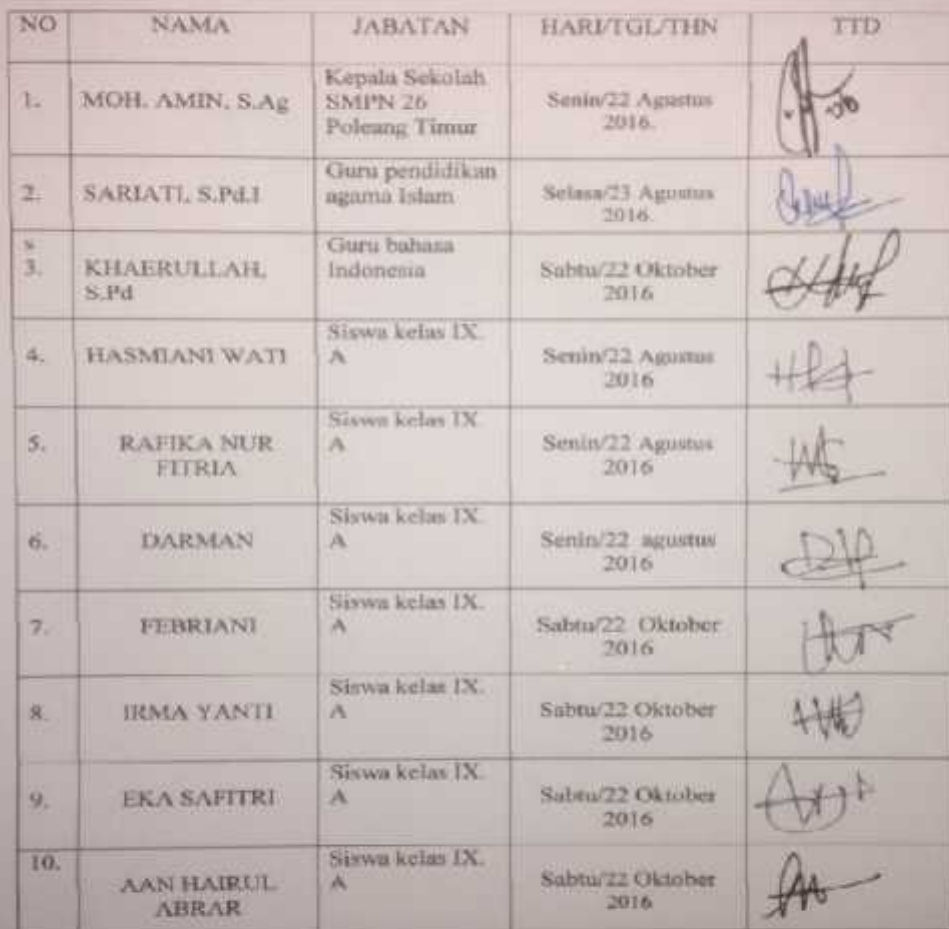 NO NAMA JABATAN HARI/TGL/THN TTD
1. MOH. AMIN, S.Ag Kepala Sekolah SMPN 26 Poleang Timur Senin/22 Agustus 2016.
2. SARIATI, S.Pd.I Guru pendidikan agama Islam Selasa/23 Agustus 2016.
s
3. KHAERULLAH, S.Pd Guru bahasa Indonesia Sabtu/22 Oktober 2016
4. HASMIANI WATI Siswa kelas IX. A Senin/22 Agustus 2016
5. RAFIKA NUR FITRIA Siswa kelas IX. A Senin/22 Agustus 2016
6. DARMAN Siswa kelas IX. A Senin/22 agustus 2016
7. FEBRIANI Siswa kelas IX. A Sabtu/22 Oktober 2016
8. IRMA YANTI Siswa kelas IX. A Sabtu/22 Oktober 2016
9. EKA SAFITRI Siswa kelas IX. A Sabtu/22 Oktober 2016
10. AAN HAIRUL ABRAR Siswa kelas IX. A Sabtu/22 Oktober 2016